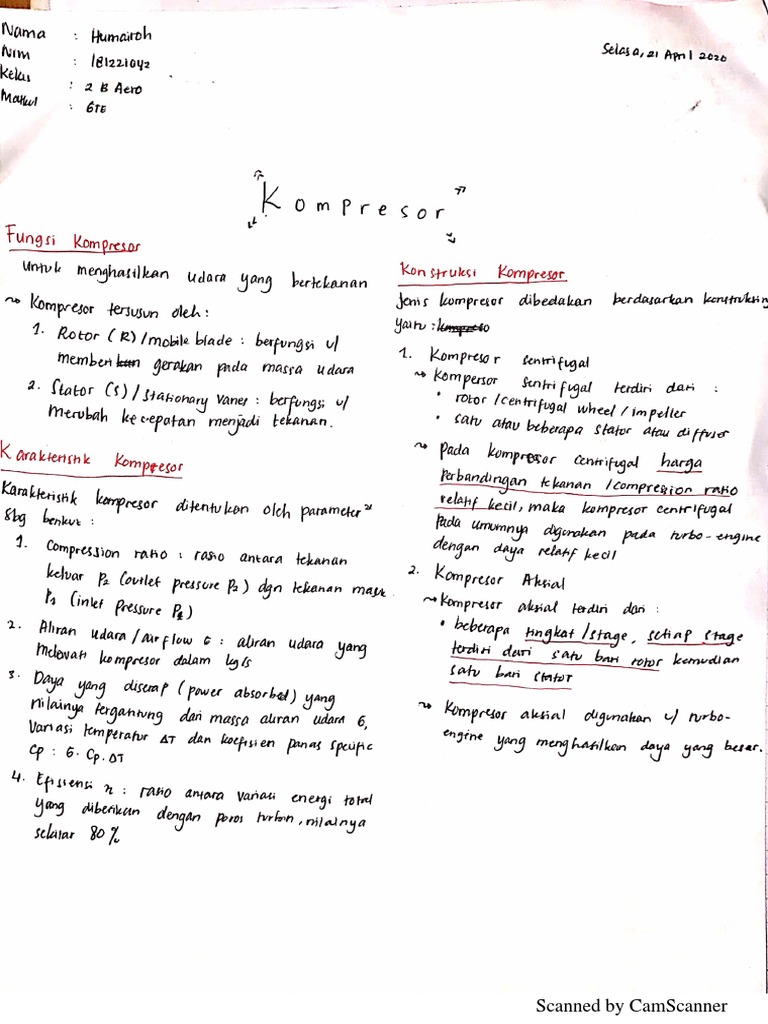 Nama : Humairoh
Nim : 181221042
Kelas : 2 B Aero
Matkul : GTE
Selasa, 21 April 2020
Kompresor
Fungsi Kompresor
Untuk menghasilkan udara yang bertekanan
~> Kompresor tersusun oleh :
1. Rotor (R) / mobile blade : berfungsi u/
memberikan gerakan pada massa udara
2. Stator (S) / Stationary Vanes : berfungsi u/
Merubah kecepatan menjadi tekanan.
Karakteristik Kompresor
Karakteristik kompresor ditentukan oleh parameter²
Sbg berikut :
1. Compression ratio : rasio antara tekanan
keluar P2 (outlet pressure P2) dgn tekanan masuk
P1 (inlet Pressure P1)
2. Aliran udara / airflow G : aliran udara yang
melewati kompresor dalam kg/s
3. Daya yang diserap (power absorbed) yang
nilainya tergantung dari massa aliran udara G,
Variasi temperatur ΔT dan koefisien panas specific
Cp : G. Cp. ΔT
4. Efisiensi η : rasio antara variasi energi total
yang diberikan dengan poros turbin, nilainya
sekitar 80%
Konstruksi Kompresor
Jenis kompresor dibedakan berdasarkan konstruksinya
yaitu : kompreso
1. Kompresor sentrifugal
~> Kompersor sentrifugal terdiri dari :
• rotor / centrifugal wheel / impeller
• satu atau beberapa stator atau diffuser
~> Pada kompresor centrifugal harga
Perbandingan tekanan / compression ratio
relatif kecil, maka kompresor centrifugal
Pada umumnya digunakan pada turbo-engine
dengan daya relatif kecil
2. Kompresor Aksial
~> Kompresor aksial terdiri dari :
• beberapa tingkat / stage, setiap stage
terdiri dari satu bari rotor kemudian
satu bari stator
~> Kompresor aksial digunakan u/ turbo-
engine yang menghasilkan daya yang besar.
Scanned by CamScanner